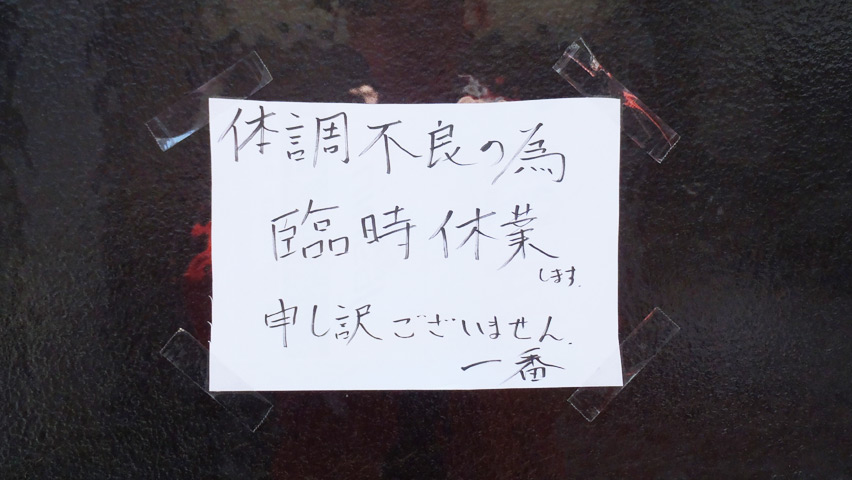 体調不良の為
臨時休業
します.
申し訳ございません.
一番